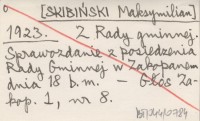 [SKIBIŃSKI Maksymilian]
1923. – Z Rady gminnej.
Sprawozdanie z posiedzenia
Rady Gminnej w Zakopanem
dnia 18 b.m. – Głos Za-
kop. 1, nr 8.